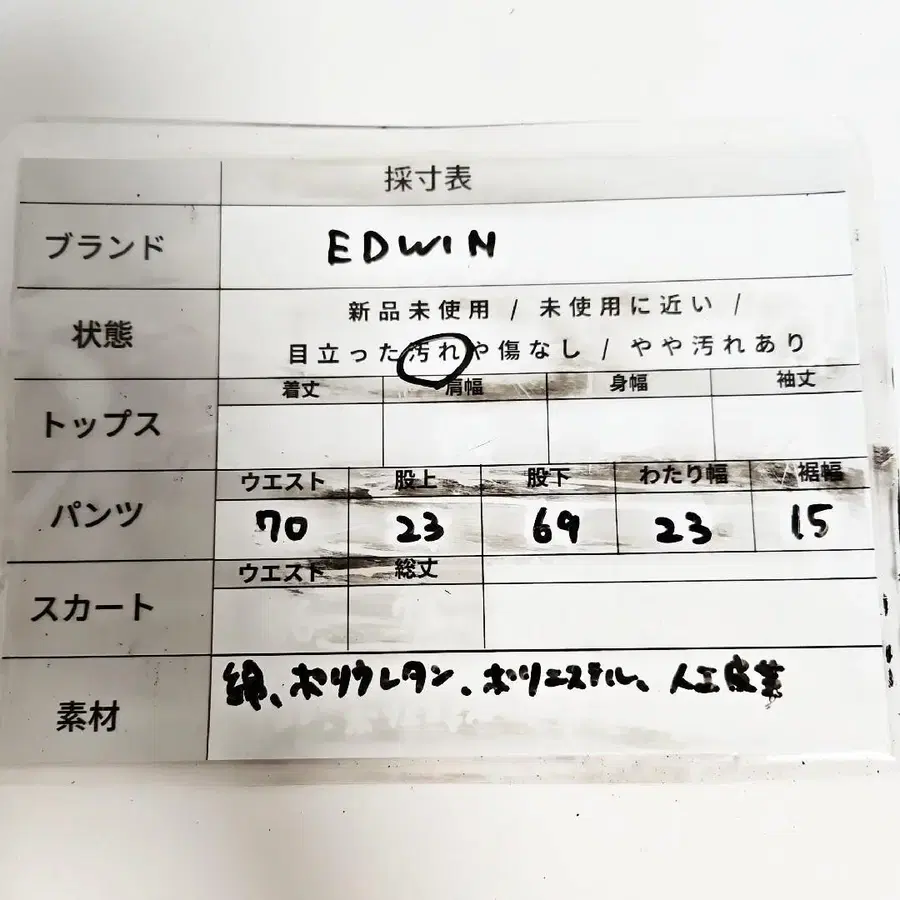 採寸表
ブランド EDWIN
状態 新品未使用 / 未使用に近い /
目立った汚れや傷なし / やや汚れあり
着丈 肩幅 身幅 袖丈
トップス
ウエスト 股上 股下 わたり幅 裾幅
パンツ 70 23 69 23 15
ウエスト 総丈
スカート
素材 綿、ポリウレタン、ポリエステル、人工皮革